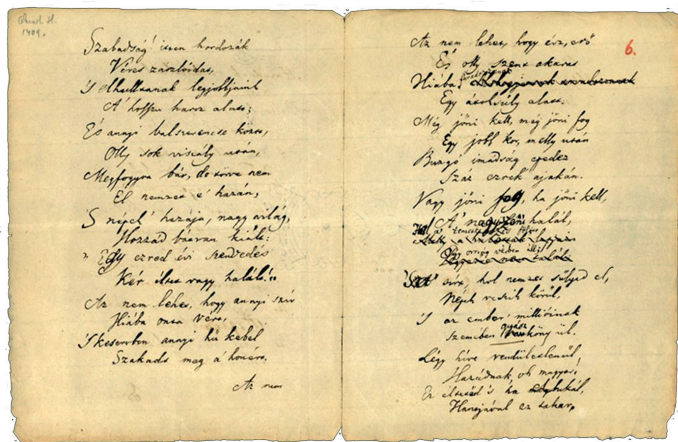 Quart. H.
1409.
Szabadság! itten hordozák
Véres zászlóidat,
'S elhulltanak legjobbjaink
A' hosszu harcz alatt;
És annyi balszerencse közt,
Olly sok viszály után,
Megfogyva bár, de törve nem
Él nemzet e' hazán,
'S népek' hazája, nagy világ,
Hozzád bátran kiált:
„Egy ezred évi szenvedés
Kér éltet vagy halált!"
Az nem lehet, hogy annyi szív
Hiába onta vért,
'S keservben annyi hű kebel
Szakadt meg a' honért.
Az nem
6.
Az nem lehet, hogy ész, erő
És olly szent akarat
Hiába
Egy átoksúly alatt.
Még jőni kell, még jőni fog
Egy jobb kor, melly után
Buzgó imádság epedez
Száz ezrek ajakán.
Vagy jőni fog, ha jőni kell,
A' nagyszerü halál,
Hol a' temetkezés fölött
Egy ország vérben áll.
sírt, hol nemzet sülyed el,
Népek veszik körűl,
'S az ember' millióinak
Szemében gyászköny űl.
Légy híve rendületlenűl
Hazádnak, oh magyar:
Ez éltetőd 's ha elbukál,
Hantjával ez takar.